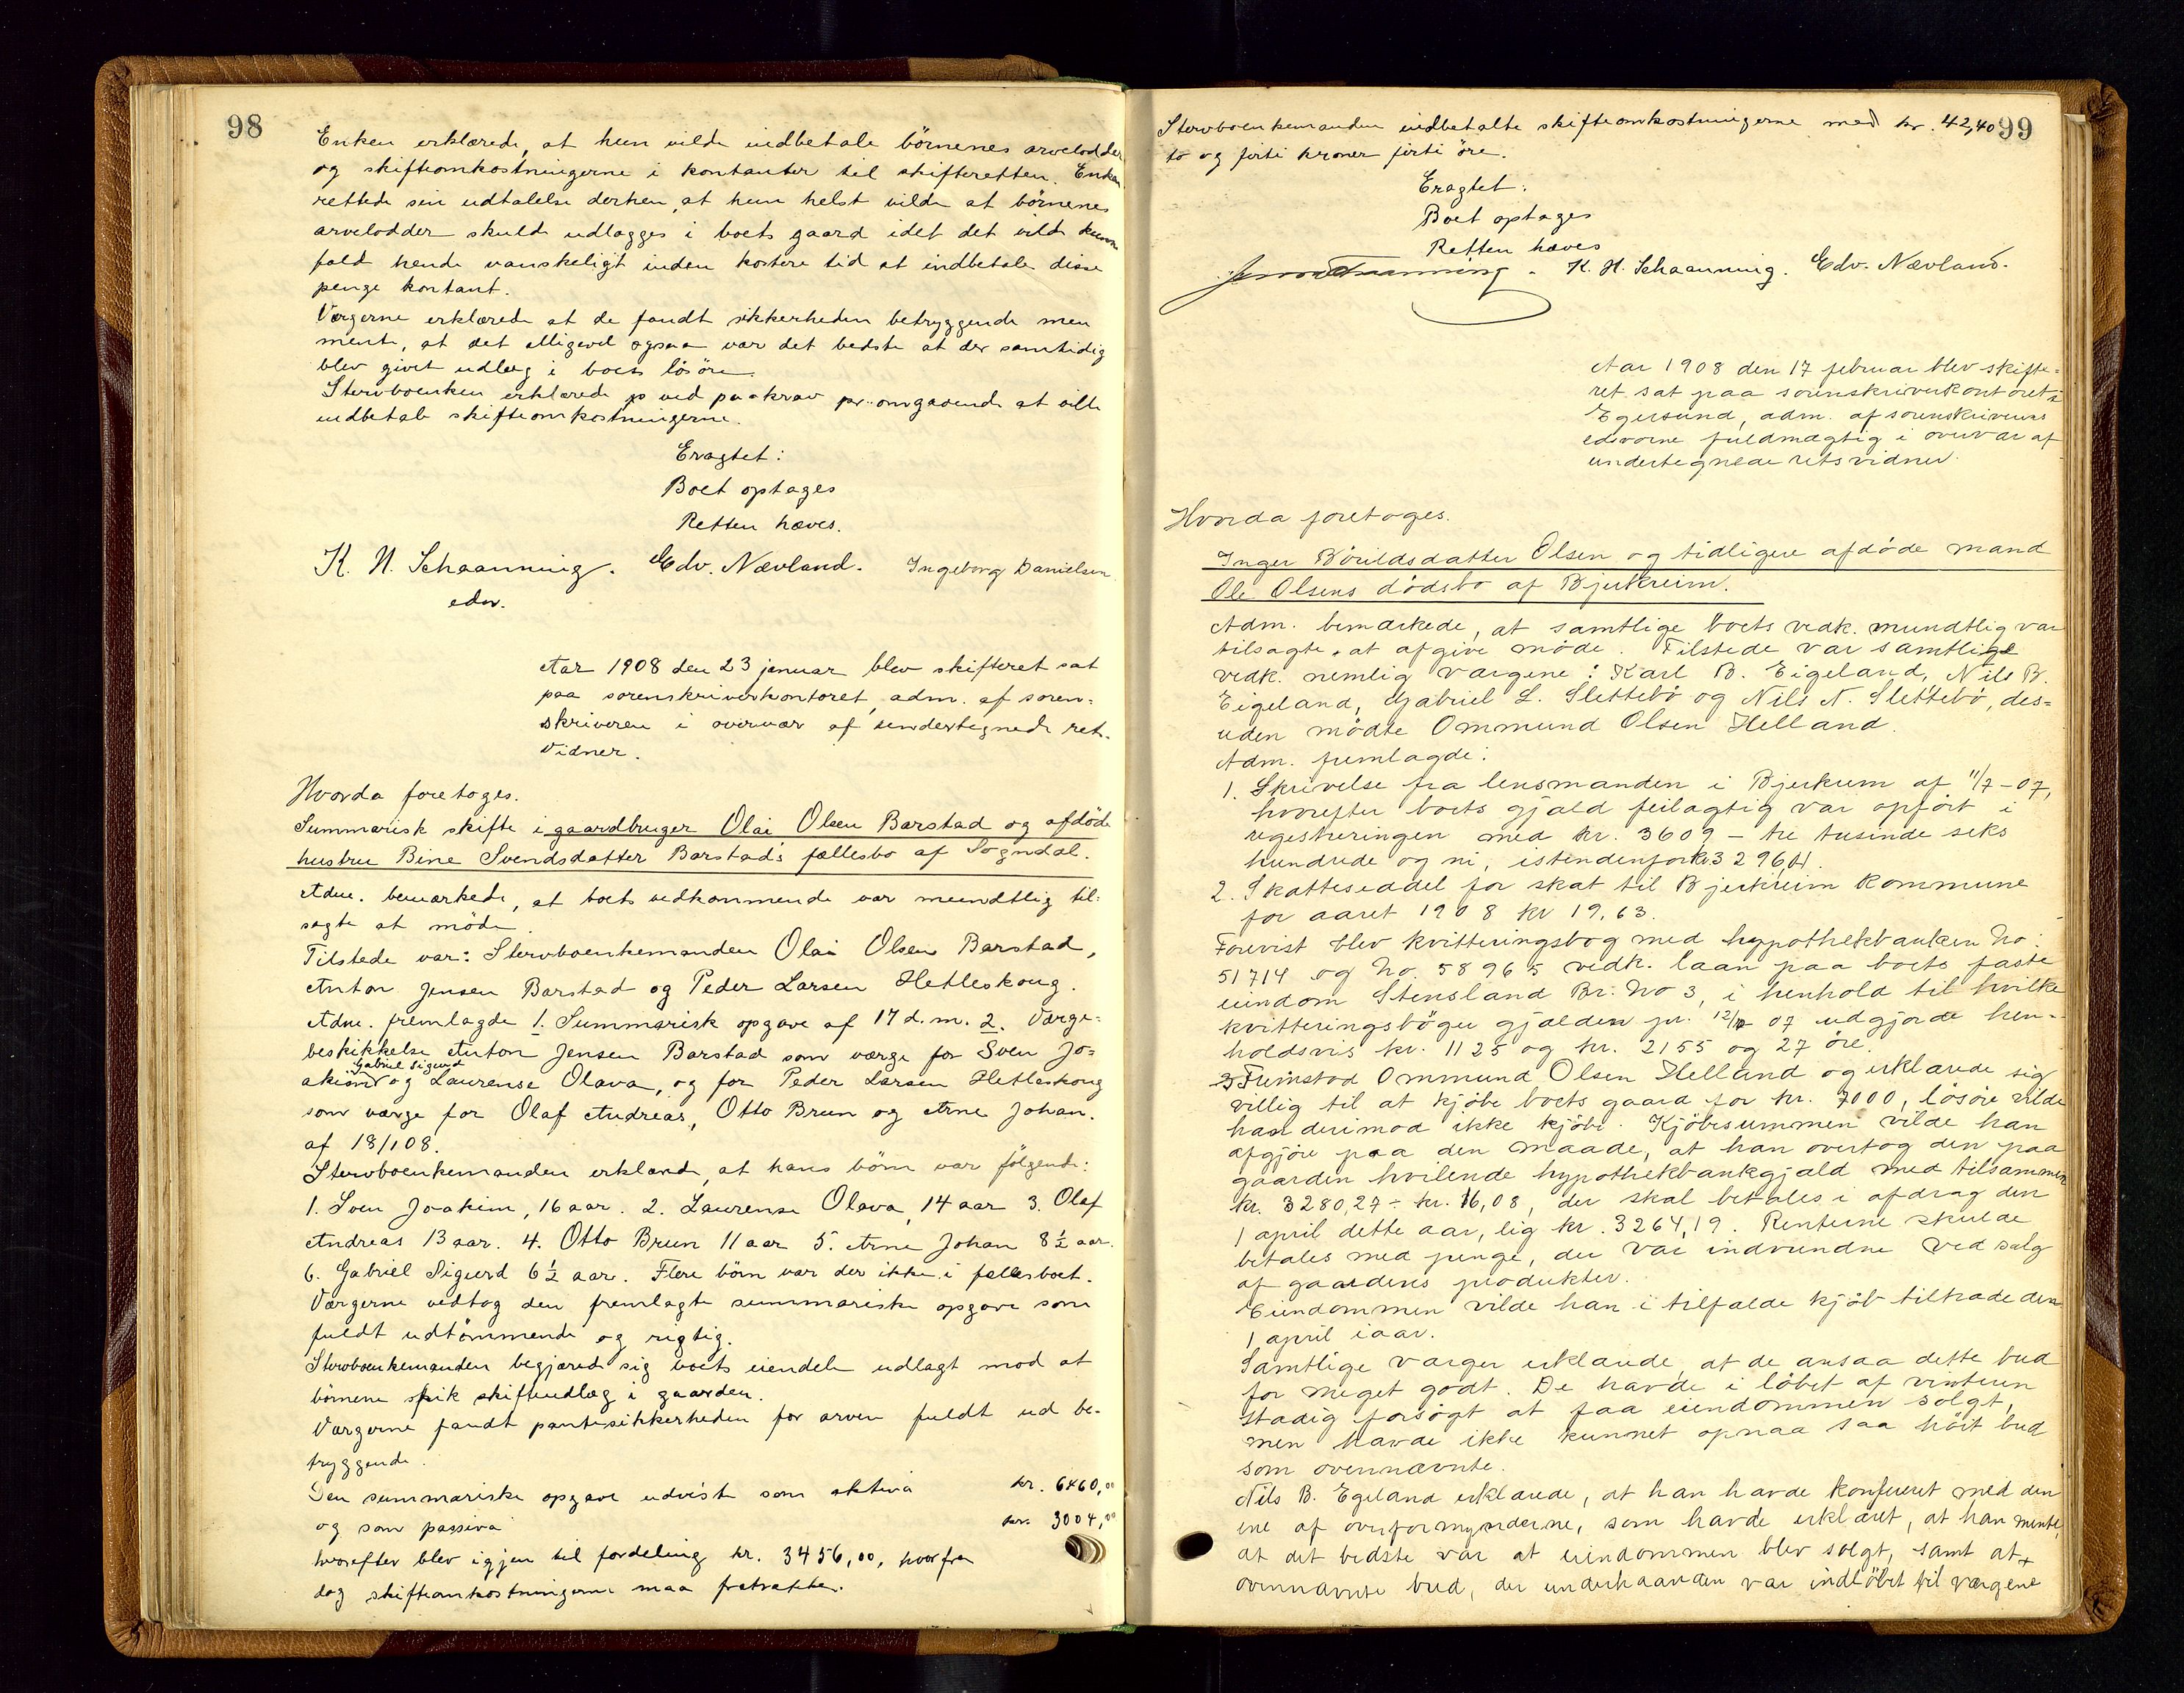 98
Enken erklærede, at hun vilde indbetale börnenes arvelodder
og skifteomkostningerne i kontanter til skifteretten. Enken
rettede sin udtalelse derhen, at hun helst vilde at börnenes
arvelodder skulde udlægges i boets gaard idet det vilde kunne
fald hende vanskeligt inden kortere tid at indbetale disse
penge kontant.
Værgerne erklærede at de fandt sikkerheden betryggende men
mente, at det alligevel ogsaa var det bedste at der samtidig
blev givet udlæg i boets lösöre.
Stervboenken erklærede ved paakrav pr. omgaaende at ville
indbetale skifteomkostningerne.
Eragtet:
Boet optages
Retten hæves.
K. H. Schaanning. Edv. Nævland. Ingeborg Danielsen
edsv.
Aar 1908 den 23 januar blev skifteret sat
paa sorenskriverkontoret, adm. af soren-
skriveren i overvær af undertegnede rets-
vidner.
Hvorda foretoges.
Summarisk skifte i gaardbruger Olai Olsen Barstad og afdöde
hustru Bine Svendsdatter Barstads fællesbo af Sogndal.
Adm. bemærkede, at boets vedkommende var mundtlig til-
sagte at möde.
Tilstede var: Stervboenkemanden Olai Olsen Barstad,
Anton Jensen Barstad og Peder Larsen Hetleskoug.
Adm. fremlagde 1. Summarisk opgave af 17 d.m. 2. Værge-
beskikkelse Anton Jensen Barstad som værge for Sven Jo-
Gabriel Sigurd
akim og Laurense Olava, og for Peder Larsen Hetleskoug
som værge for Olaf Andreas, Otto Brun og Arne Johan.
af 18/1 08.
Stervboenkemanden erklærede, at hans börn var fölgende:
1. Sven Joakim, 16 aar. 2. Laurense Olava, 14 aar 3. Olaf
Andreas 13 aar. 4. Otto Brun 11 aar 5. Arne Johan 8 1/2 aar.
6. Gabriel Sigurd 6 1/2 aar. Flere börn var der ikke i fællesboet.
Værgerne vedtog den fremlagte summariske opgave som
fuldt udtömmende og rigtig.
Stervboenkemanden begjærede sig boets eiendele udlagt mod at
börnene fik skifteudlæg i gaarden.
Værgerne fandt pantesikkerheden for arven fuldt ud be-
tryggende.
Den summariske opgave udviste som aktiva kr. 6460,00
og som passiva kr. 3004,00
hvorefter blev igjen til fordeling kr. 3456,00, hvorfra
dog skifteomkostningerne maa fratrækkes.
99
Stervboenkemanden indbetalte skifteomkostningerne med kr. 42,40
to og firti kroner firti öre.
Eragtet:
Boet optages
Retten hæves
K. H. Schaanning. Edv. Nævland.
Aar 1908 den 17 februar blev skifte-
ret sat paa sorenskriverkontoret i
Egersund, adm. af sorenskriverens
edsvorne fuldmægtig i overvær af
undertegnede retsvidner.
Hvorda foretoges.
Inger Börildsdatter Olsen og tidligere afdöde mand
Ole Olsens dödsbo af Bjerkreim.
Adm. bemærkede, at samtlige boets vedk. mundtlig var
tilsagte at afgive möde. Tilstede var samtlige
vedk. nemlig værgene: Karl B. Eigeland, Nils B.
Eigeland, Gabriel L. Slettebö og Nils N. Slettebö, des-
uden mödte Ommund Olsen Helland.
Adm. fremlagde:
1. Skrivelse fra lensmanden i Bjerkreim af 11/7-07,
hvorefter boets gjæld feilagtig var opfört i
registreringen med kr. 3609 - tre tusinde seks
hundrede og ni, istendenfor kr 3296,01.
2. Skatteseddel for skat til Bjerkreim kommune
for aaret 1908 kr 19,63.
Forevist blev kvitteringsbog med hypothekbanken No:
51714 og No. 58965 vedk. laan paa boets faste
eiendom Stensland Br. No 3, i henhold til hvilke
kvitteringsböger gjælden pr. 12/12 07 udgjorde hen-
holdsvis kr. 1125 og kr. 2155 og 27 öre.
Fremstod Ommund Olsen Helland og erklærede sig
villig til at kjöbe boets gaard for kr. 7000, lösöre vilde
han derimod ikke kjöbe. Kjöbesummen vilde han
afgjöre paa den maade, at han overtog den paa
gaarden hvilende hypothekbankgjæld med tilsammen
kr. 3280,27 ÷ kr. 16,08, der skal betales i afdrag den
1 april dette aar, lig kr. 3264,19. Renterne skulde
betales med penge, der var indvundne ved salg
af gaardens produkter.
Eiendommen vilde han i tilfælde kjöb tiltræde den
1 april iaar.
Samtlige værger erklærede at de ansaa dette bud
for meget godt. De havde i löbet af vinteren
stadig forsögt at faa eiendommen solgt,
men havde ikke kunnet opnaa saa höit bud
som ovennævnte.
Nils B. Egeland erklærede, at han havde konfereret med den
ene af overformynderne, som havde erklæret, at han mente,
at det bedste var at eiendommen blev solgt, samt at
ovennævnte bud, der underhaanden var indlöbet til værgene